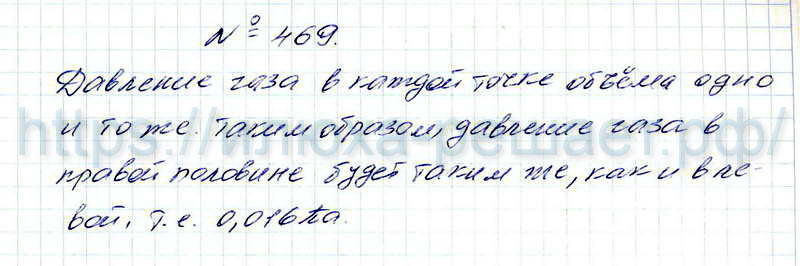 № 469.
Давление газа в каждой точке объёма одно
и то же. Таким образом, давление газа в
правой половине будет таким же, как и в ле-
вой, т.е. 0,016Па.